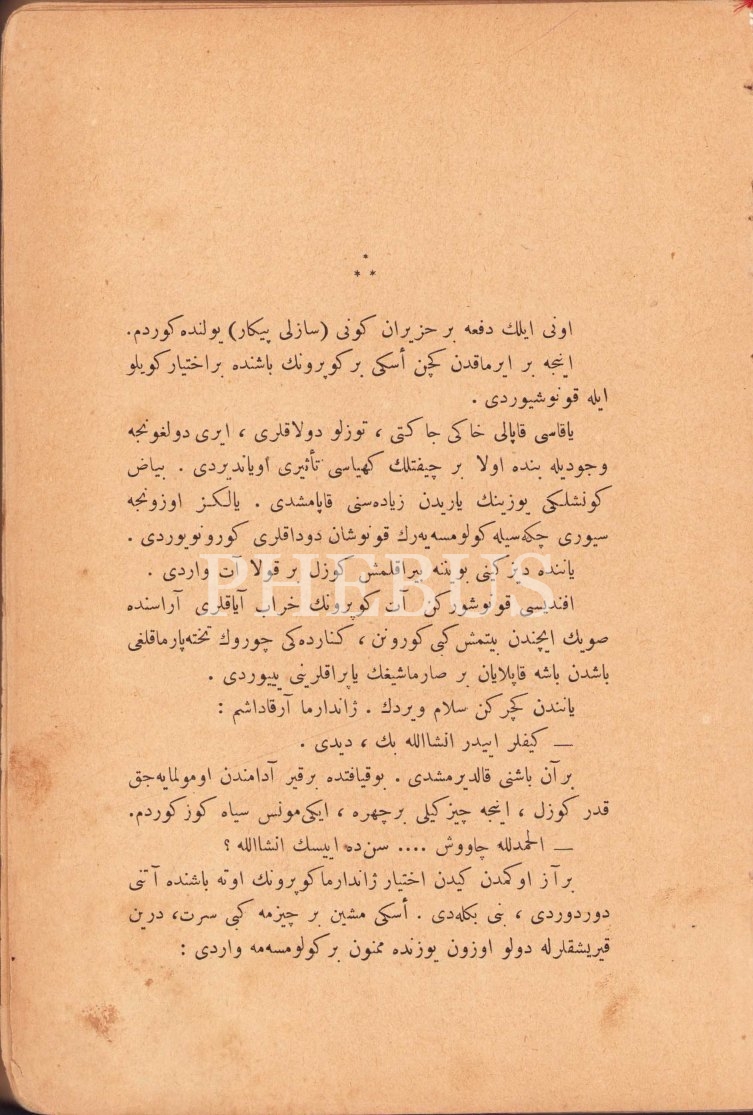 *
* *
اونی ایلك دفعه بر حزیران کونی (سازلی پیکار) یولنده کوردم.
اینجه بر ایرماقدن کچن أسکی بر کوپرونك باشنده بر اختیار کویلو
ایله قونوشیوردی .
یاقاسی قاپالی خاکی جاکتی ، توزلو دولاقلری ، ایری دولغونجه
وجودیله بنده اولا بر چیفتلك کهیاسی تأثیری اویاندیردی . بیاض
کونشلکی یوزینك یاریدن زیاده‌سنی قاپامشدی . یالکز اوزونجه
سیوری چکه‌سیله کولومسه‌یه‌رك قونوشان دوداقلری کورونویوردی .
یاننده دیزکینی بوینه بیراقلمش کوزل بر قولا آت واردی .
افندیسی قونوشورکن آت کوپرونك خراب آیاقلری آراسنده
صویك ایچندن بیتمش کبی کورونن ، کنارده‌کی چوروك تخته‌پارماقلغی
باشدن باشه قاپلایان بر صارماشیغك یاپراقلرینی ییوردی .
یانندن کچرکن سلام ویردك . ژاندارما آرقاداشم :
— کیفلر اییدر انشاالله بك ، دیدی .
بر آن باشنی قالدیرمشدی . بوقیافتده برقیر آدامندن اومولمایه‌جق
قدر کوزل ، اینجه چیزکیلی بر چهره ، ایکی مونس سیاه کوز کوردم.
— الحمدلله چاووش .... سن‌ده اییسك انشاالله ؟
بر آز اوکمدن کیدن اختیار ژاندارما کوپرونك اوته باشنده آتنی
دوردوردی ، بنی بکله‌دی . أسکی مشین بر چیزمه کبی سرت، درین
قیریشقلرله دولو اوزون یوزنده ممنون بر کولومسه‌مه واردی :
PHEBUS